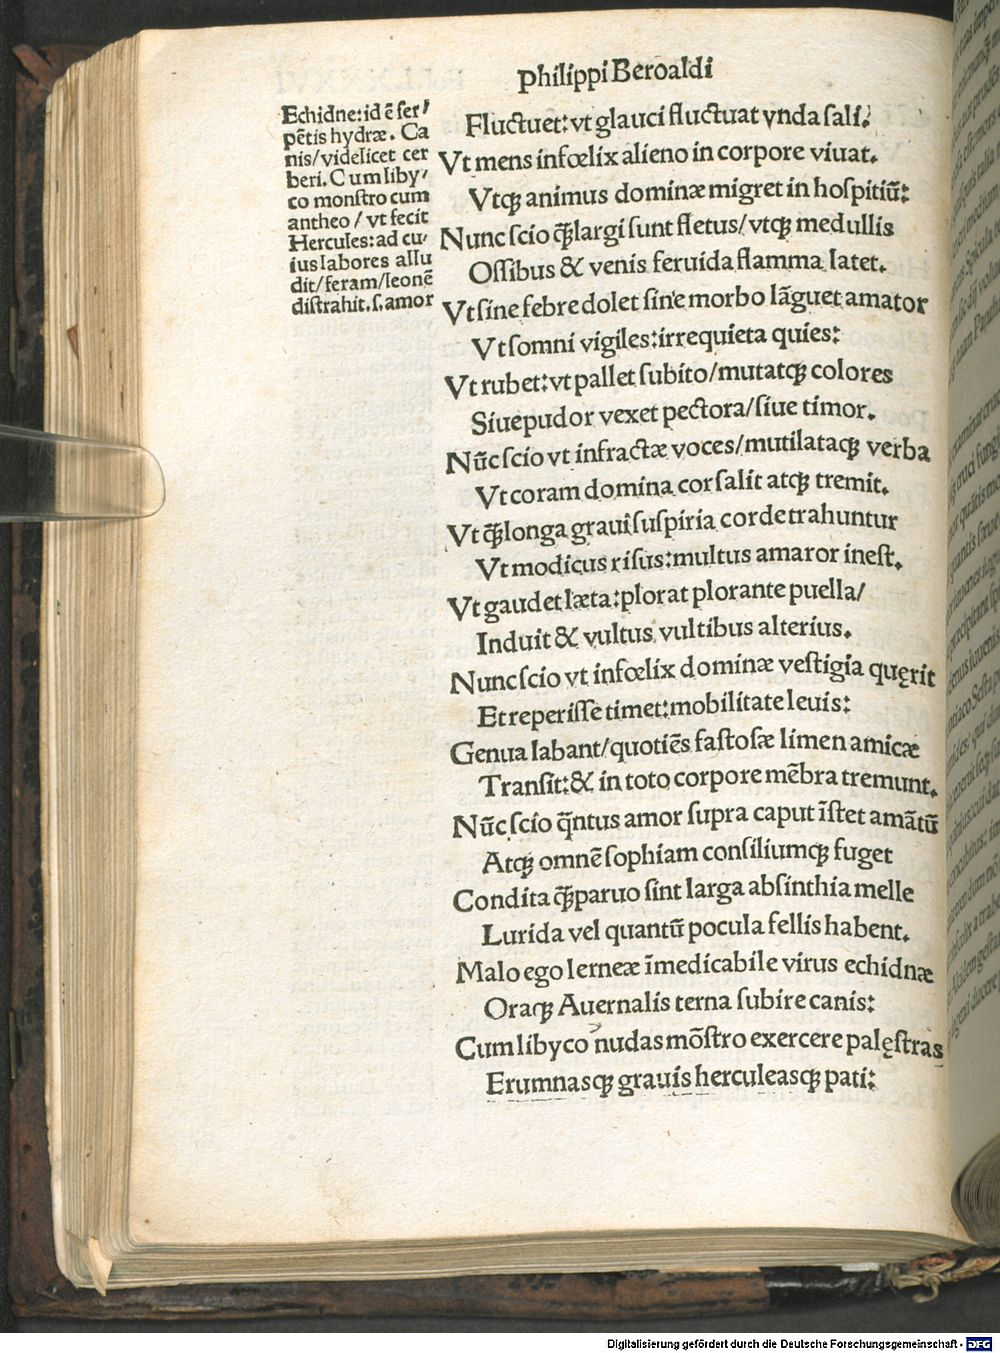 Philippi Beroaldi
Echidne: id ē ser⸗
pētis hydræ. Ca
nis/videlicet cer
beri. Cum liby⸗
co monstro cum
antheo / vt fecit
Hercules: ad cu⸗
ius labores allu
dit/feram/leonē
distrahit. s. amor
Fluctuet: vt glauci fluctuat vnda sali:
Vt mens infœlix alieno in corpore viuat.
Vtqꝫ animus dominæ migret in hospitiū:
Nunc scio qꝫ̃ largi sunt fletus/vtqꝫ medullis
Ossibus & venis feruida flamma latet.
Vt sine febre dolet sine morbo lāguet amator
Vt somni vigiles: irrequieta quies:
Vt rubet: vt pallet subito/mutatqꝫ colores
Siue pudor vexet pectora/siue timor.
Nūc scio vt infractæ voces/mutilataqꝫ verba
Vt coram domina cor salit atqꝫ tremit.
Vt qꝫ̃ longa graui suspiria corde trahuntur
Vt modicus risus: multus amaror inest.
Vt gaudet læta: plorat plorante puella/
Induit & vultus vultibus alterius.
Nunc scio vt infœlix dominæ vestigia quęrit
Et reperisse timet: mobilitate leuis:
Genua labant/quotiēs fastosæ limen amicæ
Transit: & in toto corpore mēbra tremunt.
Nūc scio q̄ntus amor supra caput īstet amātū
Atqꝫ omnē sophiam consiliumqꝫ fuget
Condita qꝫ̃ paruo sint larga absinthia melle
Lurida vel quantū pocula fellis habent.
Malo ego lerneæ īmedicabile virus echidnæ
Oraqꝫ Auernalis terna subire canis:
Cum libyco nudas mōstro exercere palęstras
Erumnasqꝫ grauis herculeasqꝫ pati:
Digitalisierung gefördert durch die Deutsche Forschungsgemeinschaft - DFG